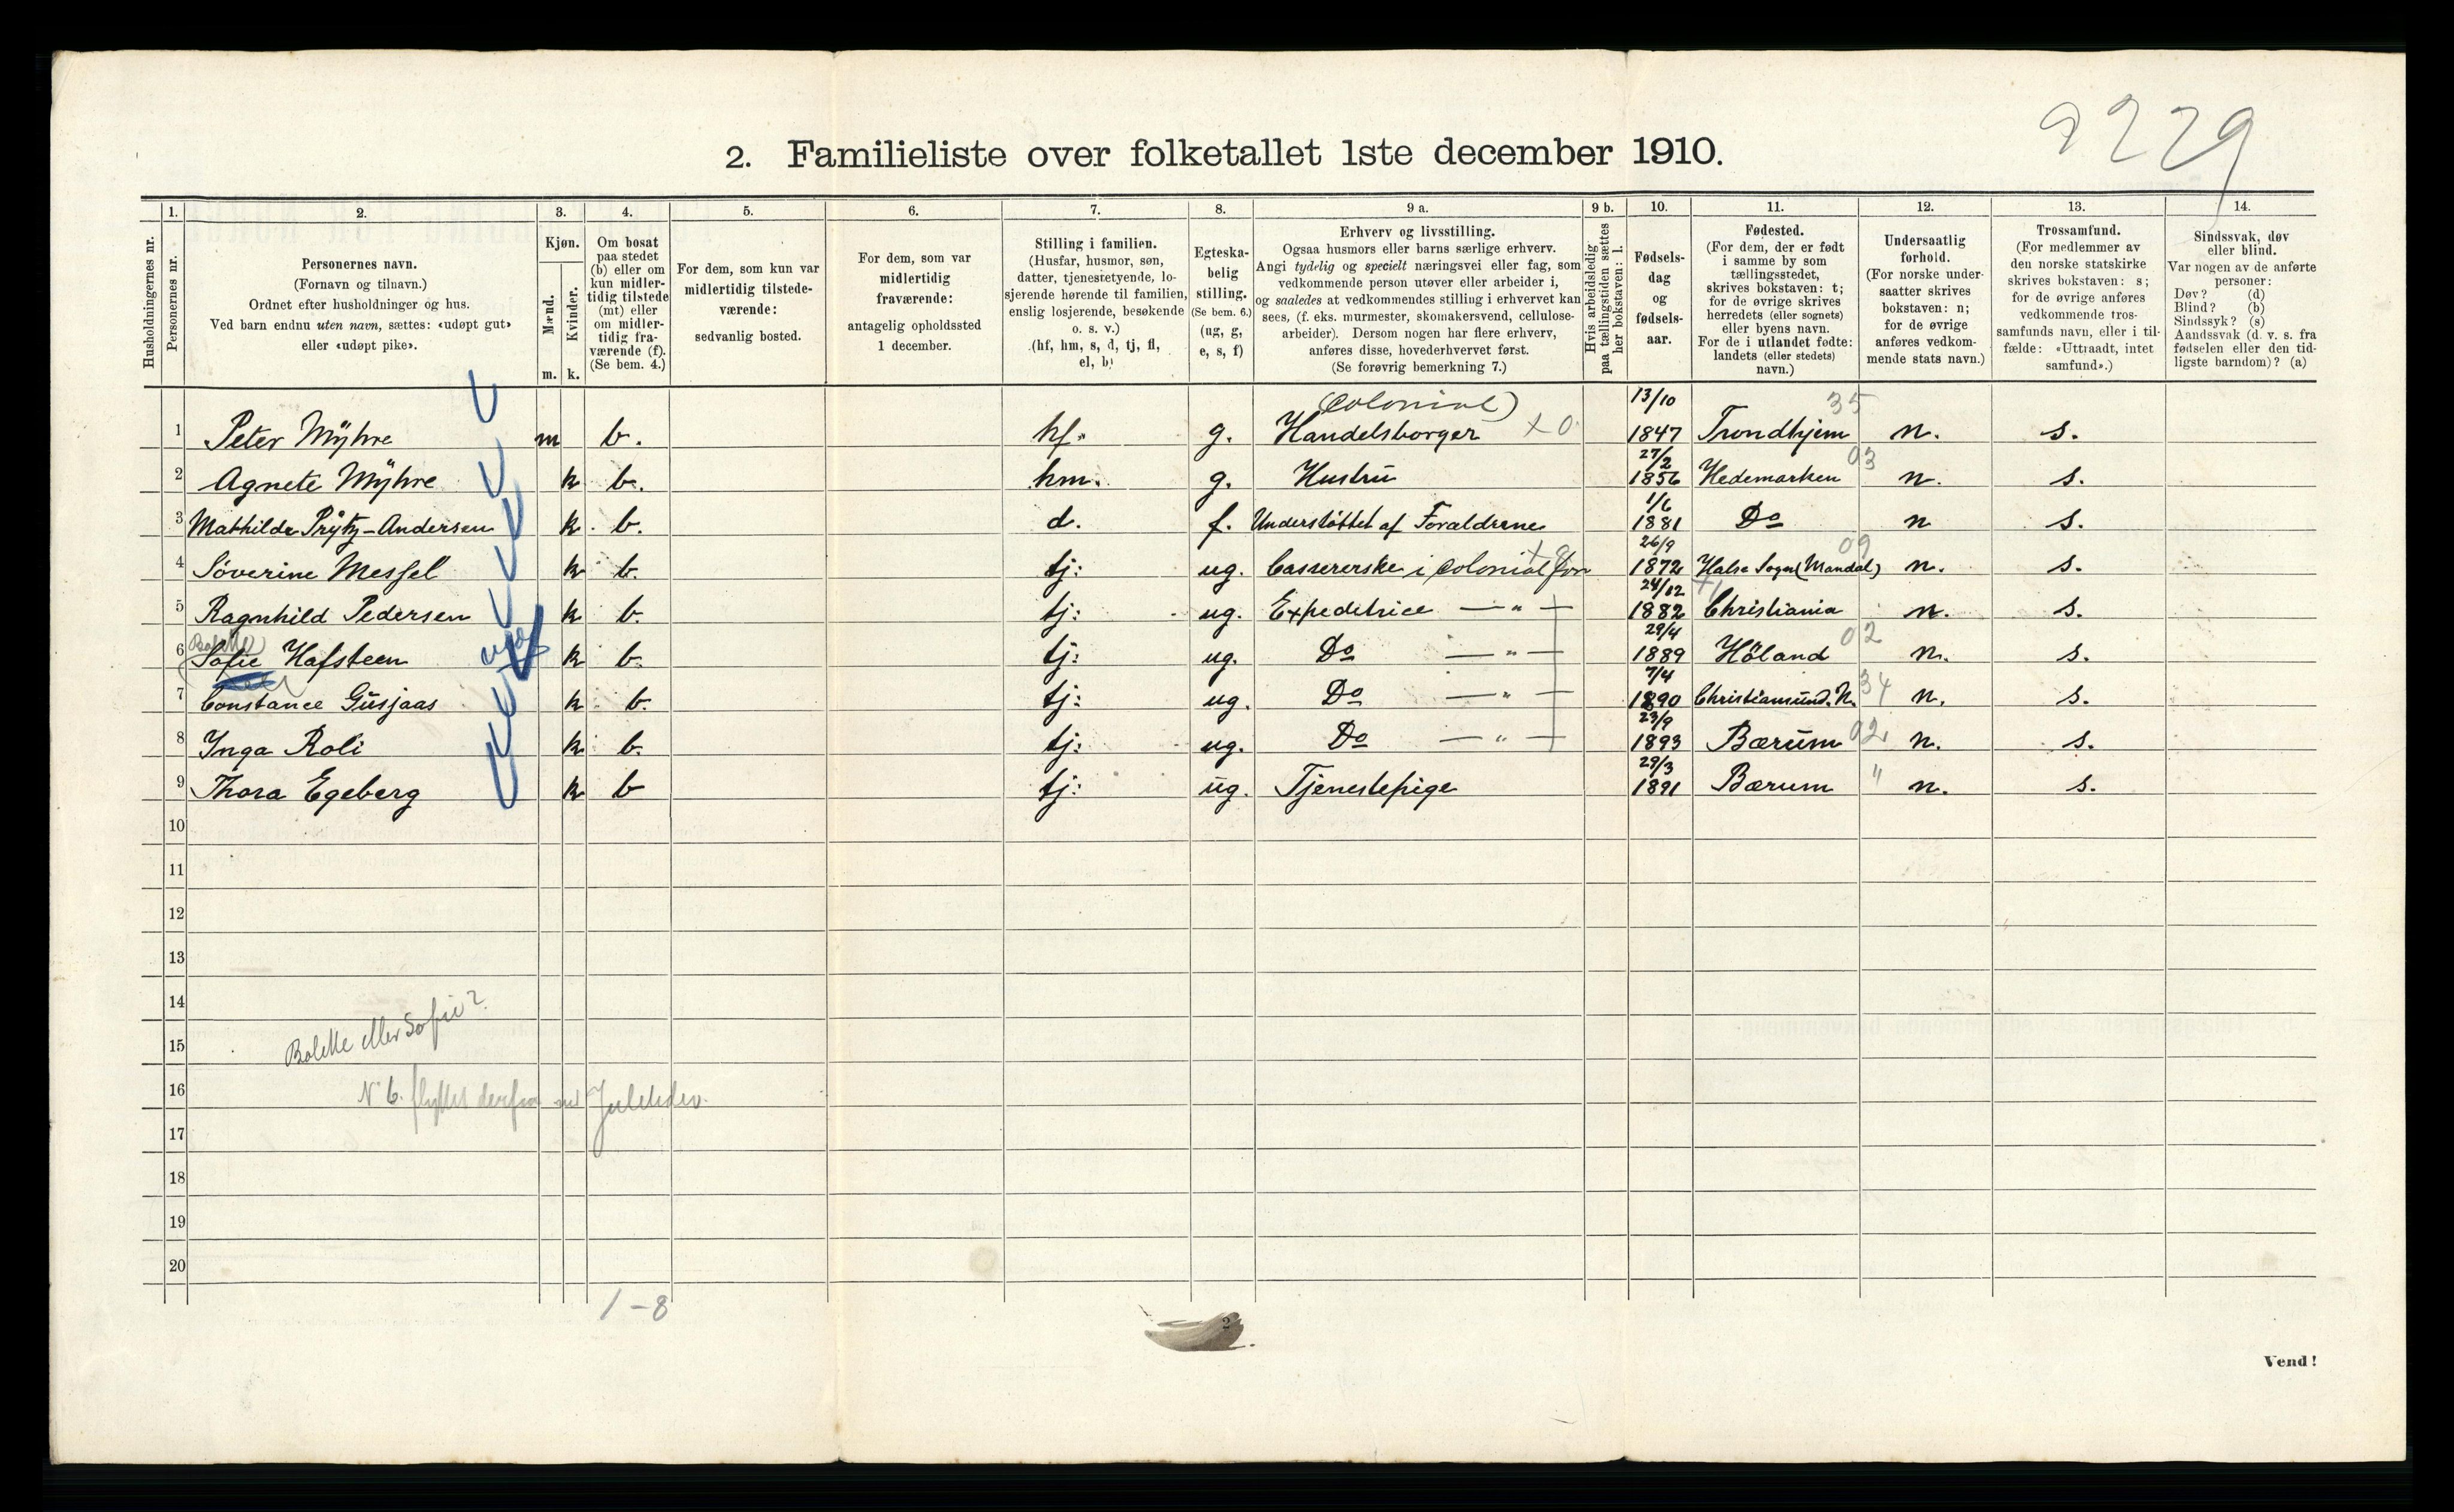 9229
2. Familieliste over folketallet 1ste december 1910.
Husholdningernes nr.
1.
Personernes nr.
2.
Personernes navn.
(Fornavn og tilnavn.)
Ordnet efter husholdninger og hus.
Ved barn endnu uten navn, sættes: «udøpt gut»
eller «udøpt pike».
3.
Kjøn.
Mænd.
Kvinder.
m. k.
4.
Om bosat
paa stedet
(b) eller om
kun midler-
tidig tilstede
(mt) eller
om midler-
tidig fra-
værende (f).
(Se bem. 4.)
5.
For dem, som kun var
midlertidig tilstede-
værende:
sedvanlig bosted.
6.
For dem, som var
midlertidig
fraværende:
antagelig opholdssted
1 december.
7.
Stilling i familien.
(Husfar, husmor, søn,
datter, tjenestetyende, lo-
sjerende hørende til familien,
enslig losjerende, besøkende
o. s. v.)
(hf, hm, s, d, tj, fl,
el, b)
8.
Egteska-
belig
stilling.
(Se bem. 6.)
(ug, g,
e, s, f)
9 a.
Erhverv og livsstilling.
Ogsaa husmors eller barns særlige erhverv.
Angi tydelig og specielt næringsvei eller fag, som
vedkommende person utøver eller arbeider i,
og saaledes at vedkommendes stilling i erhvervet kan
sees, (f. eks. murmester, skomakersvend, cellulose-
arbeider). Dersom nogen har flere erhverv,
anføres disse, hovederhvervet først.
(Se forøvrig bemerkning 7.)
9 b.
Hvis arbeidsledig
paa tællingstiden sættes
her bokstaven: l.
10.
Fødsels-
dag
og
fødsels-
aar.
11.
Fødested.
(For dem, der er født
i samme by som
tællingsstedet,
skrives bokstaven: t;
for de øvrige skrives
herredets (eller sognets)
eller byens navn.
For de i utlandet fødte:
landets (eller stedets)
navn.)
12.
Undersaatlig
forhold.
(For norske under-
saatter skrives
bokstaven: n;
for de øvrige
anføres vedkom-
mende stats navn.)
13.
Trossamfund.
(For medlemmer av
den norske statskirke
skrives bokstaven: s;
for de øvrige anføres
vedkommende tros-
samfunds navn, eller i til-
fælde: «Uttraadt, intet
samfund».)
14.
Sindssvak, døv
eller blind.
Var nogen av de anførte
personer:
Døv? (d)
Blind? (b)
Sindssyk? (s)
Aandssvak (d. v. s. fra
fødselen eller den tid-
ligste barndom)? (a)
(Colonial) 13/10 35
1 Peter Mÿhre m b. hf. g. Handelsborger x 0 1847 Trondhjem n. s.
27/2 03
2 Agnete Mÿhre k b. hm. g. Hustru 1856 Hedemarken n. s.
1/6
3 Mathilde Prÿtz-Andersen k. b. d. f. Understöttet af Foraldrene 1881 Do n s.
26/9 09
4 Söverine Messel k b. tj: ug. Cassererske i Colonial for 1872 Halse Sogn (Mandal) n. s.
24/12
5 Ragnhild Pedersen k b. tj: ug. Expeditrice — " — 1882 Christiania n. s.
Bolette 29/4 02
6 Sofie Hafsteen k b. tj: ug. Do — " — 1889 Höland n. s.
7/4 34
7 Constance Gusjaas k b. tj: ug. Do — " — 1890 Christiansund. N. n. s.
23/9 02
8 Inga Roli k b. tj: ug. Do — " — 1893 Bærum n. s.
29/3
9 Thora Egeberg k b tj: ug. Tjenestepige 1891 Bærum " n. s.
10
11
12
13
14
Bolette eller Sofie?
15
16 N 6. flyttet derfra
17
18
19
20
1-8
2
Vend!